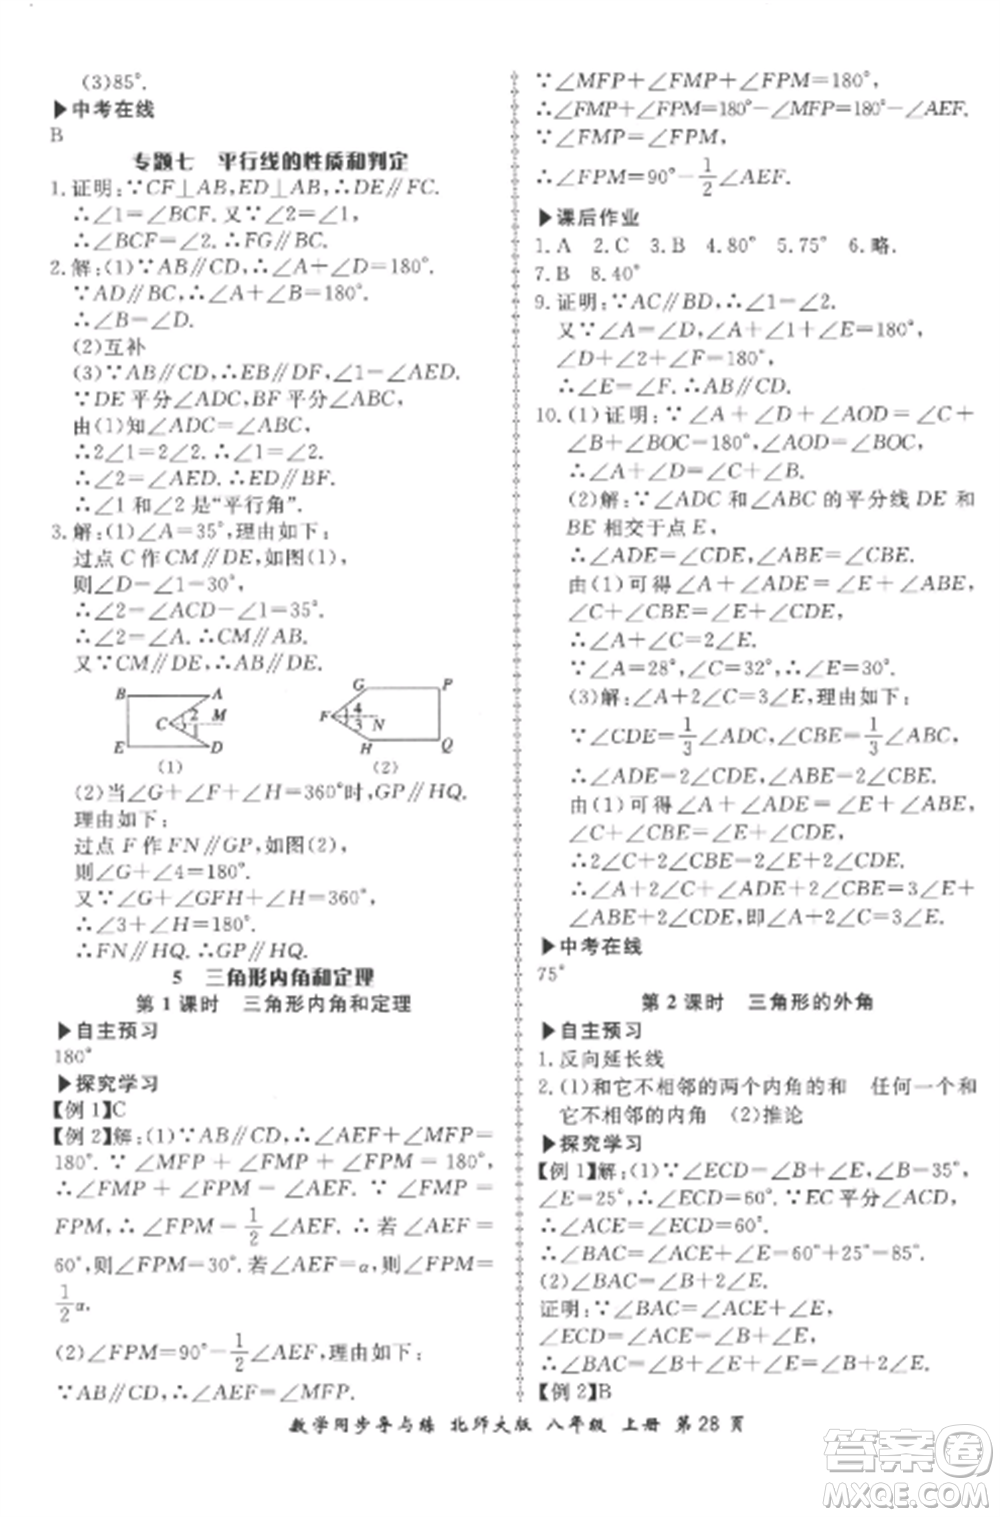 (3)85°.
▶中考在线
B
专题七 平行线的性质和判定
1.证明:∵CF⊥AB,ED⊥AB,∴DE∥FC.
∴∠1=∠BCF.又∵∠2=∠1,
∴∠BCF=∠2.∴FG∥BC.
2.解:(1)∵AB∥CD,∴∠A+∠D=180°.
∵AD∥BC,∴∠A+∠B=180°.
∴∠B=∠D.
(2)互补
(3)∵AB∥CD,BE∥DF,∴∠1=∠AED.
∵DE平分∠ADC,BF平分∠ABC,
由(1)知∠ADC=∠ABC,
∴2∠1=2∠2.∴∠1=∠2.
∴∠2=∠AED.∴DE∥BF.
∴∠1和∠2是“平行角”.
3.解:(1)∠A=35°,理由如下:
过点C作CM∥DE,如图(1),
则∠D=∠1=30°,
∴∠2=∠ACD-∠1=35°.
∴∠2=∠A.∴CM∥AB.
又∵CM∥DE,∴AB∥DE.
B A C 2 3 M E D (1)
G P F 4 3 N H Q (2)
(2)当∠G+∠F+∠H=360°时,GP∥HQ.
理由如下:
过点F作FN∥GP,如图(2),
则∠G+∠4=180°.
又∵∠G+∠GFH+∠H=360°
∴∠3+∠H=180°.
∴FN∥HQ.∴GP∥HQ.
5 三角形内角和定理
第1课时 三角形内角和定理
▶自主预习
180°
▶探究学习
【例1】C
【例2】解:(1)∵AB∥CD,∴∠AEF+∠MFP=
180°.∵∠MFP+∠FMP+∠FPM=180°,
∴∠FMP+∠FPM=∠AEF.∵∠FMP=
∠FPM,∴∠FPM=1/2∠AEF.∴若∠AEF=
60°,则∠FPM=30°.若∠AEF=α,则∠FPM=
1/2α.
(2)∠FPM=90°-1/2∠AEF,理由如下:
∵AB∥CD,∴∠AEF=∠MFP.
∵∠MFP+∠FMP+∠FPM=180°,
∴∠FMP+∠FPM=180°-∠MFP=180°-∠AEF.
∵∠FMP=∠FPM,
∴∠FPM=90°-1/2∠AEF.
▶课后作业
1.A 2.C 3.B 4.80° 5.75° 6.略.
7.B 8.40°
9.证明:∵AC∥BD,∴∠1=∠2.
又∵∠A=∠D,∠A+∠1+∠E=180°,
∠D+∠2+∠F=180°,
∴∠E=∠F.∴AE∥DF.
10.(1)证明:∵∠A+∠D+∠AOD=∠C+
∠B+∠BOC=180°,∠AOD=∠BOC,
∴∠A+∠D=∠C+∠B.
(2)解:∵∠ADC和∠ABC的平分线DE和
BE相交于点E,
∴∠ADE=∠CDE,∠CBE=∠ABE.
由(1)可得∠A+∠ADE=∠E+∠ABE,
∠C+∠CBE=∠E+∠CDE,
∴∠A+∠C=2∠E.
∵∠A=28°,∠C=32°,∴∠E=30°.
(3)解:∠A+2∠C=3∠E,理由如下:
∵∠CDE=1/3∠ADC,∠CBE=1/3∠ABC,
∴∠ADE=2∠CDE,∠ABE=2∠CBE.
由(1)可得∠A+∠ADE=∠E+∠ABE,
∠C+∠CBE=∠E+∠CDE,
∴2∠C+2∠CBE=2∠E+2∠CDE.
∴∠A+2∠C+∠ADE+2∠CBE=3∠E+
∠ABE+2∠CDE,即∠A+2∠C=3∠E.
▶中考在线
75°
第2课时 三角形的外角
▶自主预习
1.反向延长线
2.(1)和它不相邻的两个内角的和 任何一个和
它不相邻的内角 (2)推论
▶探究学习
【例1】解:(1)∵∠ECD=∠B+∠E,∠B=35°,
∠E=25°,∴∠ECD=60°.∵EC平分∠ACD,
∴∠ACE=∠ECD=60°.
∴∠BAC=∠ACE+∠E=60°+25°=85°.
(2)∠BAC=∠B+2∠E.
证明:∵∠BAC=∠ACE+∠E,
∠ECD=∠B+∠E,∠ACE=∠ECD,
∴∠BAC=∠B+∠E+∠E=∠B+2∠E.
【例2】B
数学同步导与练 北师大版 八年级 上册 第28页
答案圈
MXQE.COM